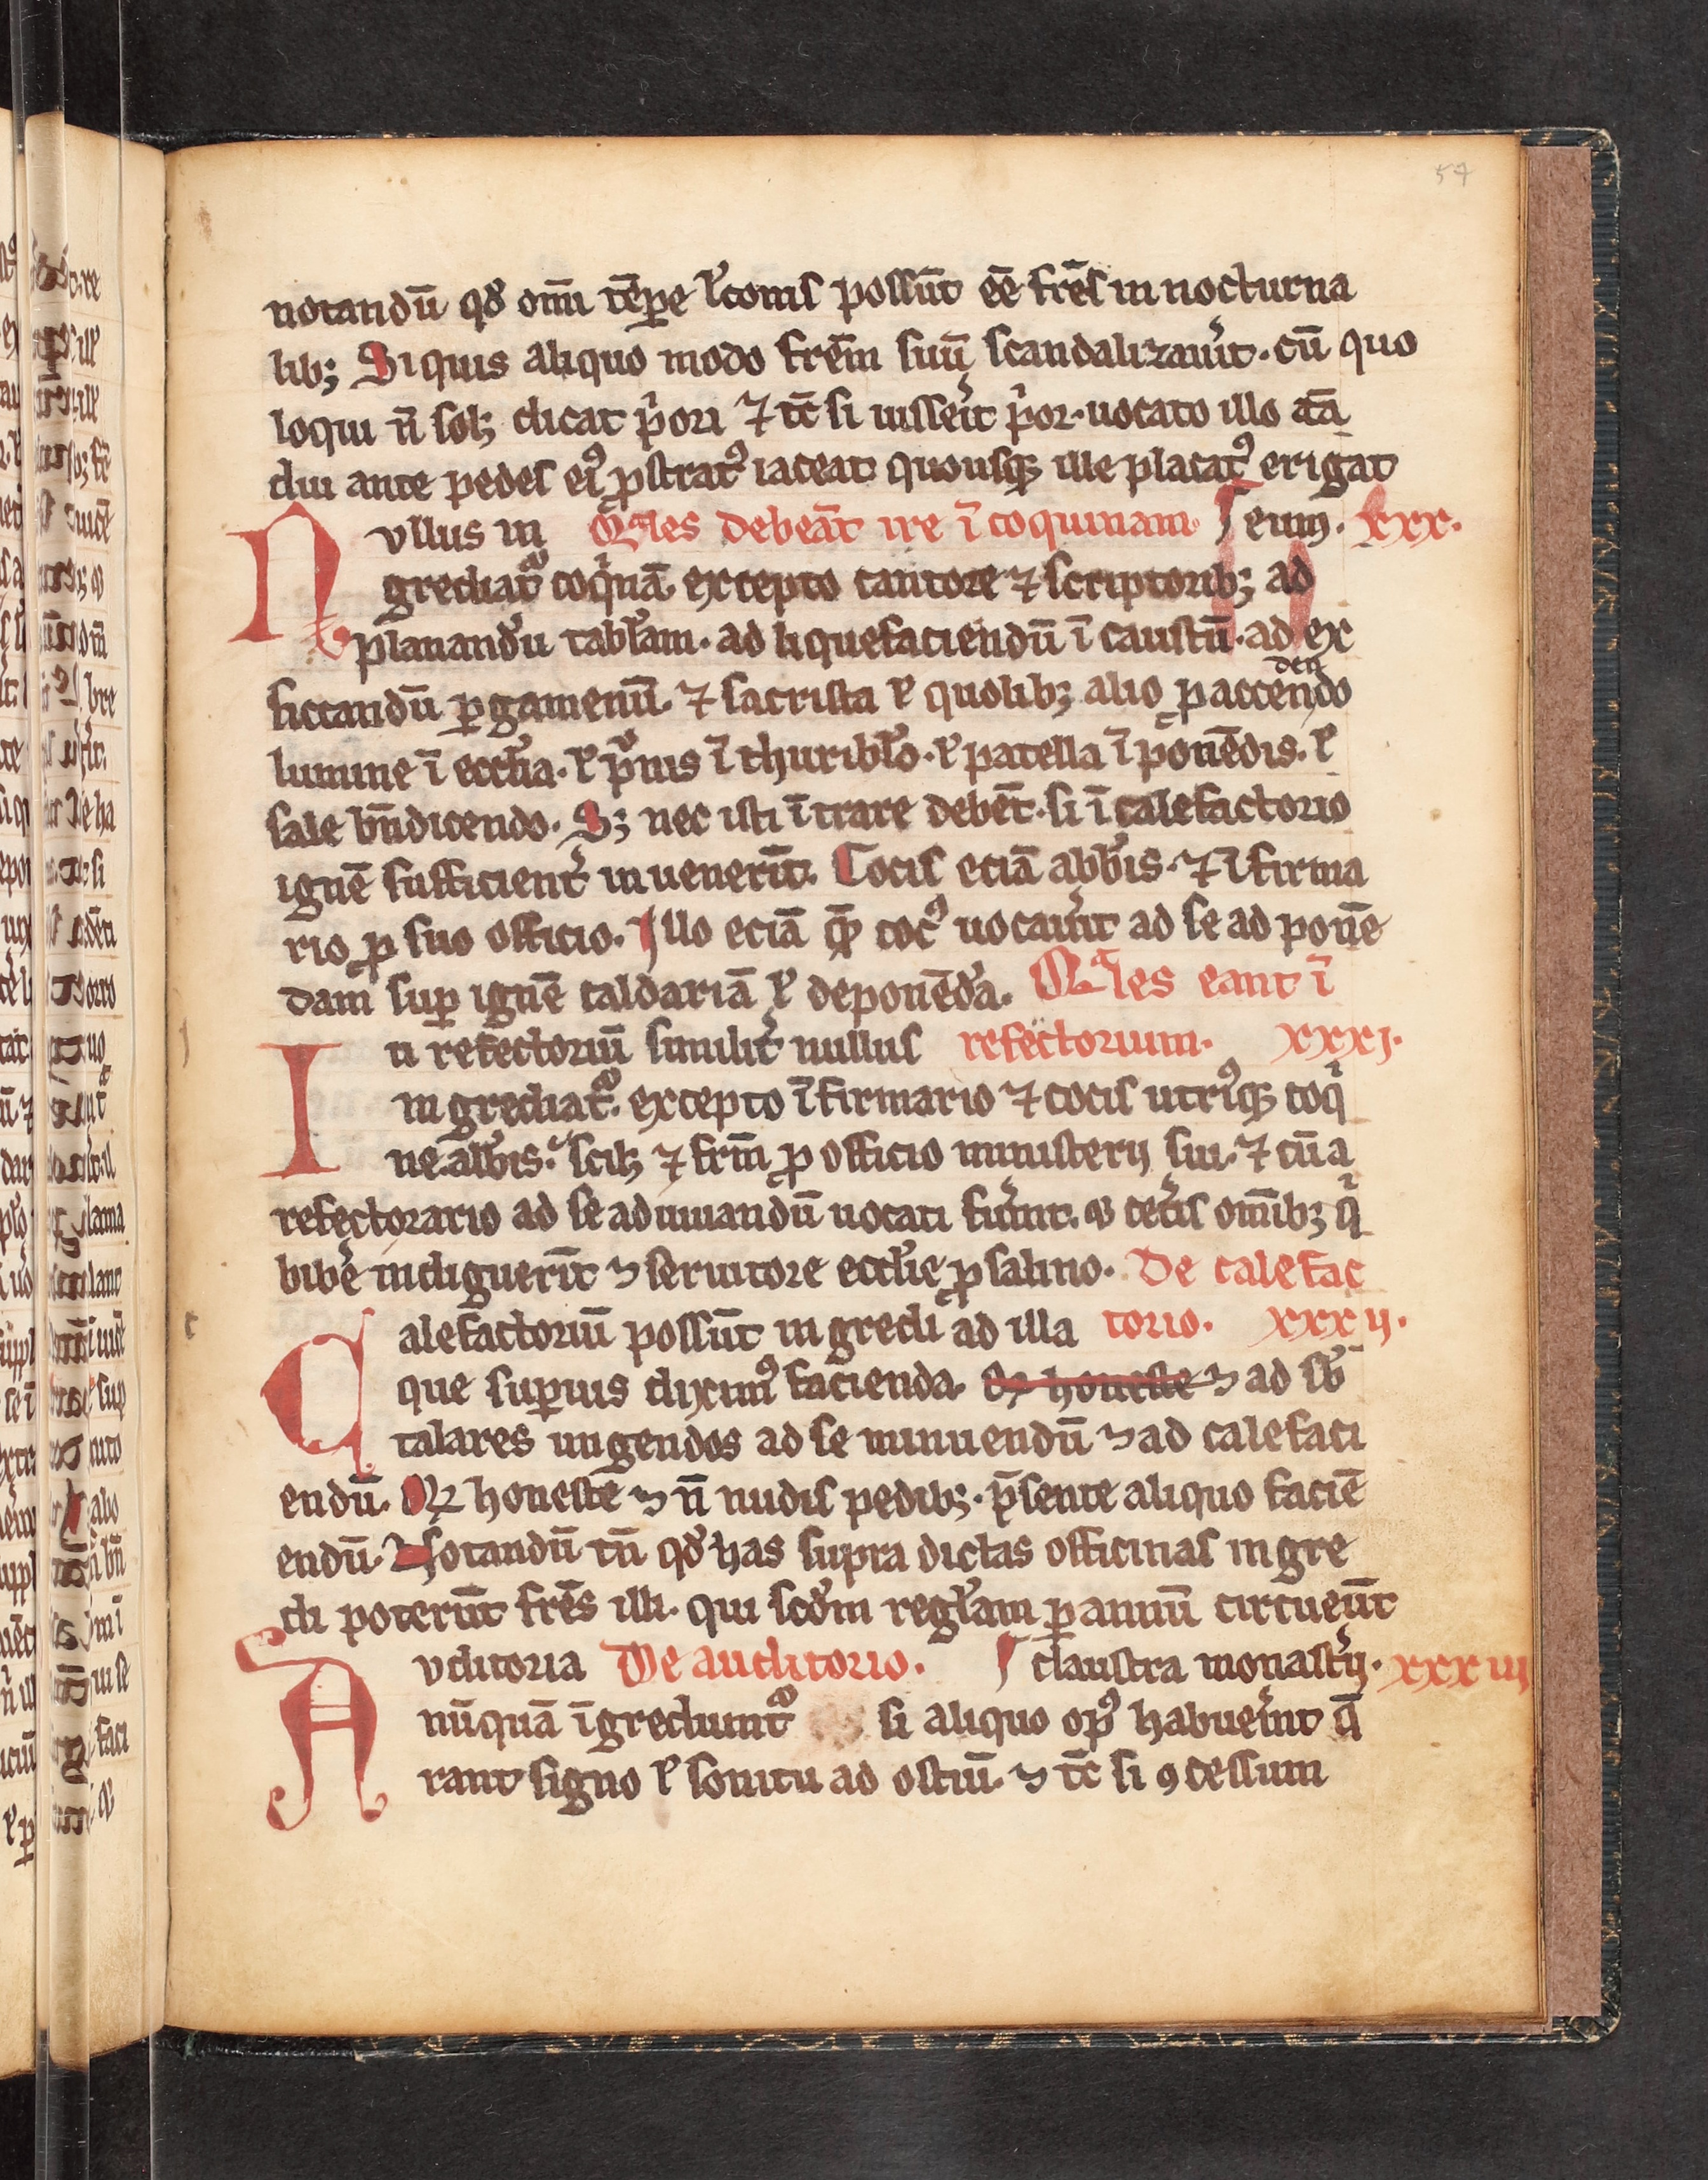 57
notandū qđ om̄i tēꝑe lc̄onis possūt eē frēs in nocturna
lib; Si quis aliquo modo frēm suū scandalizauẽit. cū quo
loqui n̄ sol; dicat p̄ori ⁊ tc̄ si iusserit p̄or. uocato illo tā
diu ante pedes eiꝰ ꝓstratꝰ iaceat quousqꝫ ille placatꝰ erigat
Nullus in Qͣles debeāt ire ī coquinam. eum. xxx.
grediatᷣ coqͥnā. excepto cantore ⁊ scriptorib; ad
planandu tabl̄am. ad liquefaciendū ī caustū. ad ex
siccandū ꝑgamenū. ⁊ sacrista ł quolib; alio ꝓ accendendo
lumine ī eccl̄ia. ł p̄nis ī thuribl̄o. ł patella īponēdis. ł
sale bn̄dicendo. S; nec isti ītrare debēt. si ī calefactorio
ignē sufficient̄ inuenerīt. Cocis eciā abb̄is. ⁊ īfirma
rio ꝓ suo officio. Illo eciā qm̄ cocꝰ uocauẽit ad se ad ponē
dam suꝑ ignē caldariā ł deponēda. Qͣles eant ī
In refectoriū similit̄ nullus refectorium. xxxj.
ingrediatᷣ. excepto īfirmario ⁊ cocis utriꝰqꝫ coqͥ
ne. abb̄is. scil; ⁊ frm̄ ꝓ officio ministerij sui. ⁊ cū a
refectorario ad se adiuuandū uocati fuẽint. ⁊ cet̄is om̄ib; qͥ
bibē indiguerīt ⁊ seruitore eccl̄ie ꝓ salino. De calefac
Calefactoriū possūt ingredi ad illa torio. xxxij.
que suꝑius diximꝰ facienda. Et honeste ⁊ ad sb̄
talares ungendos ad se minuendū ⁊ ad calefaci
endū. Et honeste ⁊ n̄ nudis pedib; p̄sente aliquo faciē
endū. Notandū tn̄ qđ has supra dictas officinas ingre
di poterūt frēs illi. qui scđm regl̄am ꝑ annū circueūt
Auditoria De auditorio. claustra monastẽij. xxxiij
nūquā īgrediuntᷣ si aliquo opꝰ habuẽint q̄
rant signo ł sonitu ad ostiū. ⁊ tc̄ si ꝯcessum